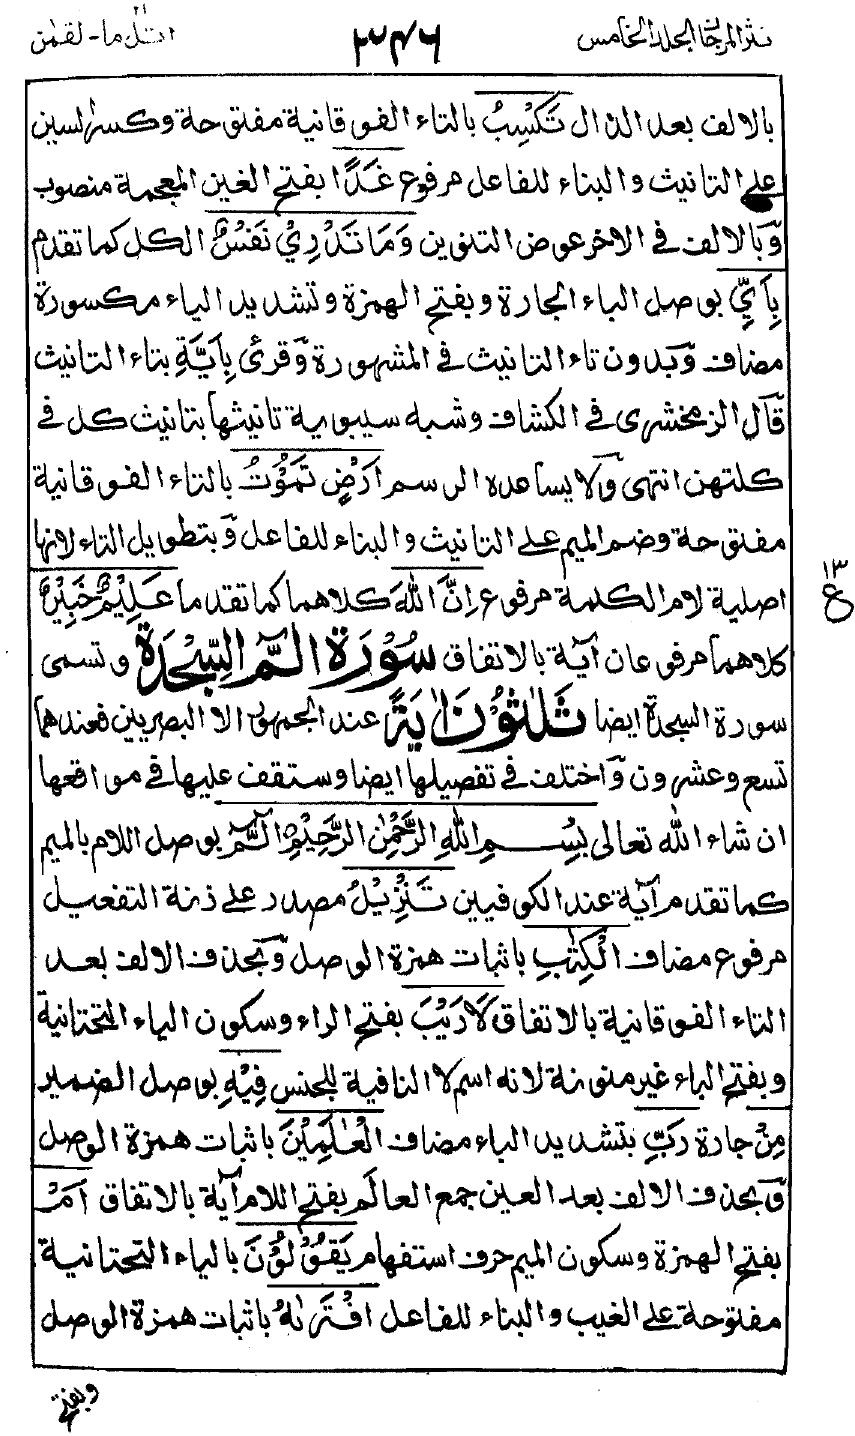 نثر المرجان الجلد الخامس
٣٤٦
اتل ما - لقمٰن
٢١
بالالف بعد الذال تَكْسِبُ بالتاء الفوقانية مفتوحة وكسر السين
على التانيث والبناء للفاعل مرفوع غَدًا بفتح الغين المعجمة منصوب
وبالالف فى الاخر عوض التنوين وَمَا تَدْرِيْ نَفْسٌ الكل كما تقدم
بِاَيِّ بوصل الباء الجارة وبفتح الهمزة وتشديد الياء مكسورة
مضاف وبدون تاء التانيث فى المشهورة وقرئ بِاَيَّةِ بتاء التانيث
قال الزمخشرى فى الكشاف وشبه سيبويه تانيثها بتانيث كل فى
كلتهن انتهى ولا يساعده الرسم اَرْضٍ تَمُوْتُ بالتاء الفوقانية
مفتوحة وضم الميم على التانيث والبناء للفاعل وبتطويل التاء لانها
اصلية لام الكلمة مرفوع اِنَّ اللّٰهَ كلاهما كما تقدما عَلِيْمٌ خَبِيْرٌ
كلاهما مرفوعان آية بالاتفاق سُوْرَة الٓمّٓ السَّجْدَة وتسمى
سورة السجدة ايضا ثَلٰثُوْنَ اٰيَةً عند الجمهور الا البصريين فعندهما
تسع وعشرون واختلف فى تفصيلها ايضا وستقف عليها فى مواقعها
ان شاء الله تعالى بِسْمِ اللّٰهِ الرَّحْمٰنِ الرَّحِيْمِ الٓمّٓ بوصل اللام بالميم
كما تقدم آية عند الكوفيين تَنْزِيْلُ مصدر على زنة التفعيل
مرفوع مضاف الْكِتٰبِ باثبات همزة الوصل وبحذف الالف بعد
التاء الفوقانية بالاتفاق لَا رَيْبَ بفتح الراء وسكون الياء التحتانية
وبفتح الباء غير منونة لانه اسم لا النافية للجنس فِيْهِ بوصل الضمير
مِنْ جارة رَبِّ بتشديد الباء مضاف الْعٰلَمِيْنَ باثبات همزة الوصل
وبحذف الالف بعد العين جمع العالَم بفتح اللام آية بالاتفاق اَمْ
بفتح الهمزة وسكون الميم حرف استفهام يَقُوْلُوْنَ بالياء التحتانية
مفتوحة على الغيب والبناء للفاعل افْتَرٰىهُ باثبات همزة الوصل
١٣
ع
وبفتح